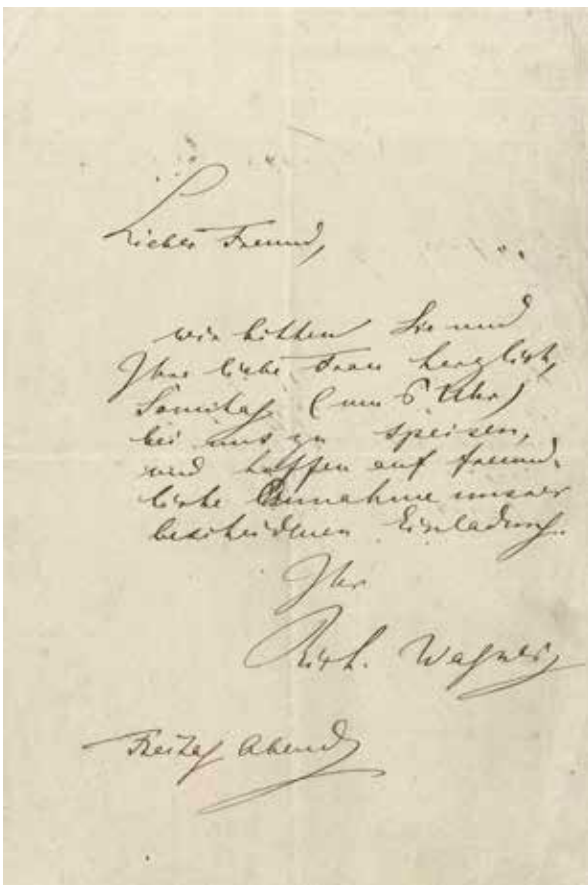 Lieber Freund,
wir bitten Sie und
Ihre liebe Frau herzlich,
Sonntag (um 5 Uhr)
bei uns zu speisen,
und hoffen auf freund-
liche Annahme unsrer
bescheidenen Einladung.
Ihr
Rich. Wagner
Freitag Abend